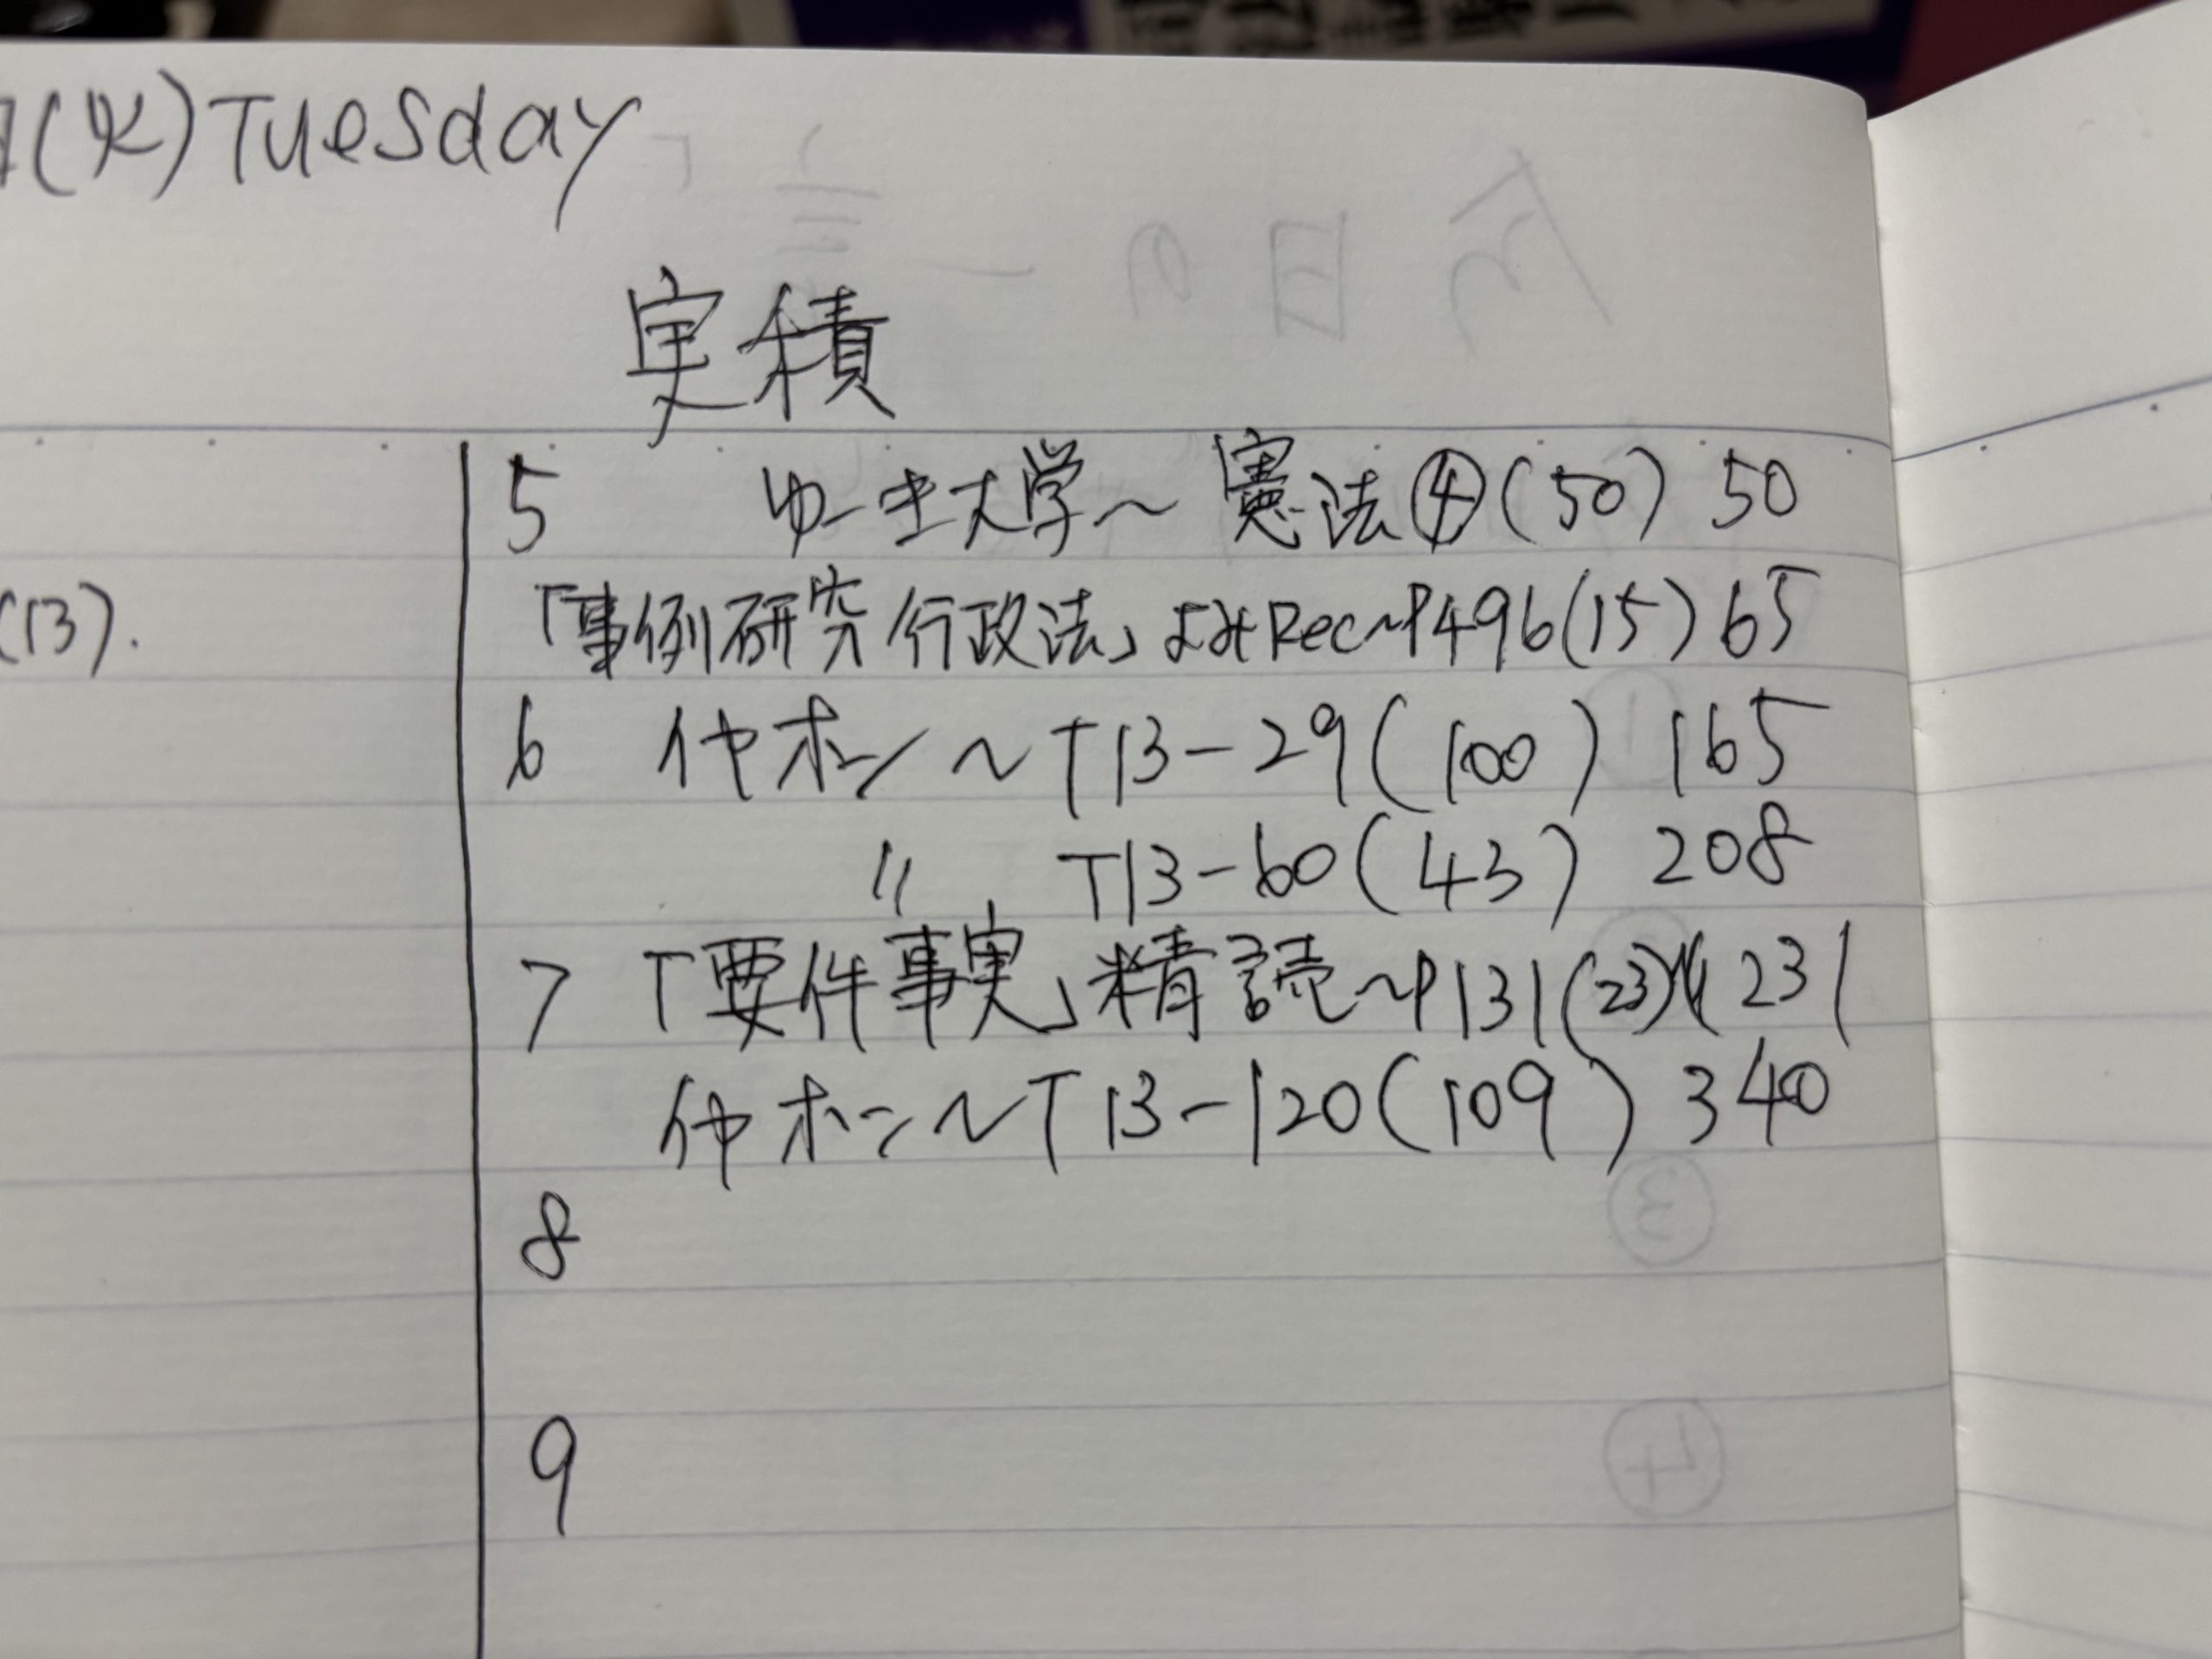 (火)Tuesday
実積
5 ゆーき大学~憲法④(50) 50
(13).
「事例研究行政法」よみRec~P496(15) 65
6 仲ホン~T13-29(100) 165
〃 T13-60(43) 208
7 「要件事実」精読~P131(23) 231
仲ホン~T13-120(109) 340
8
9